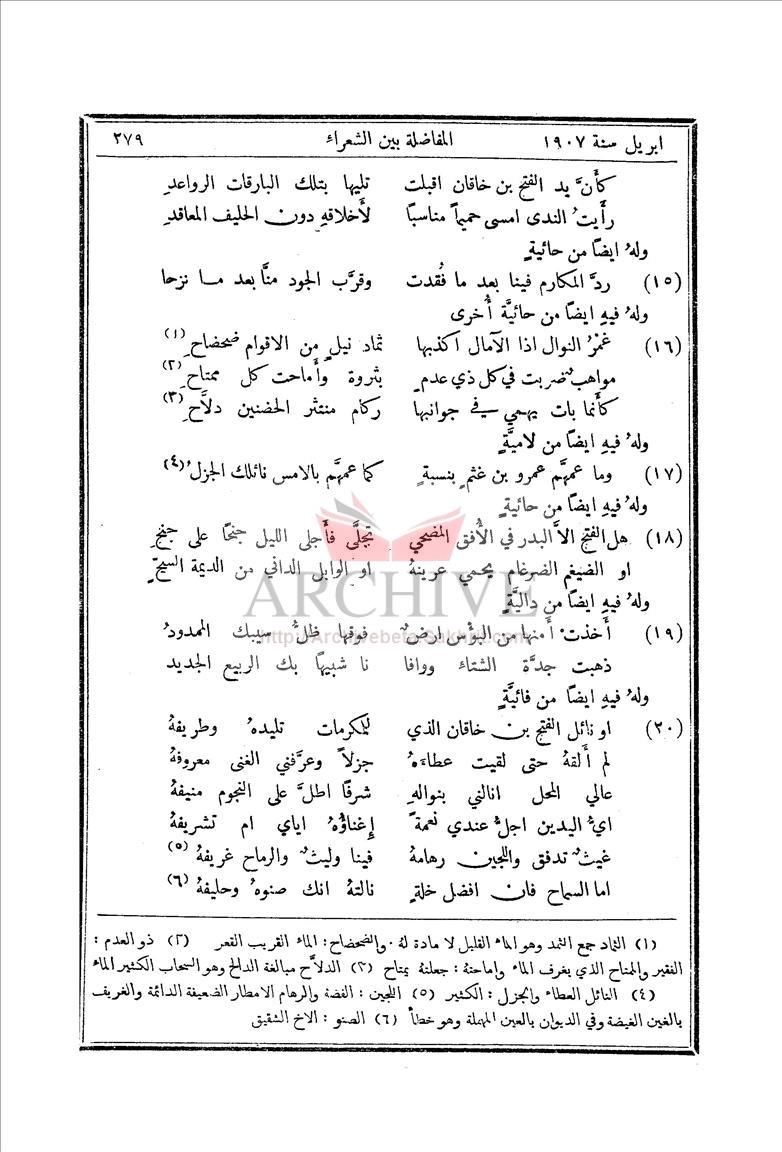 ابريل سنة ١٩٠٧ المفاضلة بين الشعراء ٢٧٩
كأنَّ يد الفتح بن خاقان اقبلت تليها بتلك البارقات الرواعدِ
رأَيتُ الندى امسى حميماً مناسبًا لأَخلاقهِ دون الحليف المعاقدِ
ولهُ ايضًا من حائيةٍ
(١٥) ردَّ المكارم فينا بعد ما فُقدت وقرَّب الجود منَّا بعد ما نزحا
ولهُ فيهِ ايضًا من حائيَّة أُخرى
(١٦) غمْرُ النوال اذا الآمال اكذبها ثماد نيلٍ من الاقوام ضحضاحِ (١)
مواهبٌ ضربت في كل ذي عدمٍ بثروة وأَماحت كل ممتاحِ (٢)
كأنما بات يهمي في جوانبها ركام منتثر الحضنين دلاَّحِ (٣)
ولهُ فيهِ ايضًا من لاميَّةٍ
(١٧) وما عمهَّم عمرو بن غثمٍ بنسبةٍ كما عمهَّم بالامس نائلك الجزلُ (٤)
ولهُ فيهِ ايضًا من حائيةٍ
(١٨) هل الفتح الاَّ البدر في الأُفق المضحي تجلَّى فأَجلى الليل جنحًا على جنحِ
او الضيغم الضرغام يحمي عرينهُ او الوابل الداني من الديمة السحِّ
ARCHIVE
ولهُ فيهِ ايضًا من داليَّةٍ
(١٩) أُخذتْ أمنها من البؤس ارضٌ فوقها ظلُّ سيبك الممدودُ
ذهبت جدَّة الشتاء ووافا نا شبيهًا بك الربيع الجديد
ولهُ فيهِ ايضًا من فائيَّةٍ
(٢٠) او نائل الفتح بن خاقان الذي للمكرمات تليدهُ وطريفهُ
لم أَلقهُ حتى لقيت عطاءَهُ جزلاً وعرَّفني الغنى معروفهُ
عالي المحل انالني بنوالهِ شرفًا اطلَّ على النجوم منيفهُ
ايُّ اليدين اجلُّ عندي نعمةً إِغناؤُهُ اياي ام تشريفهُ
غيثٌ تدفق واللجين رهامهُ فينا وليثٌ والرماح غريفهُ (٥)
اما السماح فان افضل خلةٍ نالتهُ انك صنوهُ وحليفهُ (٦)
(١) الثماد جمع الثمد وهو الماء القليل لا مادة لهُ . والضحضاح: الماء القريب القعر (٢) ذو العدم :
الفقير والممتاح الذي يغرف الماء واماحتهُ : جعلتهُ يمتاح (٣) الدلاَّح مبالغة الدالح وهو السحاب الكثير الماء
(٤) النائل العطاء والجزل : الكثير (٥) اللجين : الفضة والرهام الامطار الضعيفة الدائمة والغريف
بالغين الغيضة وفي الديوان بالعين المهملة وهو خطأ (٦) الصنو : الاخ الشقيق